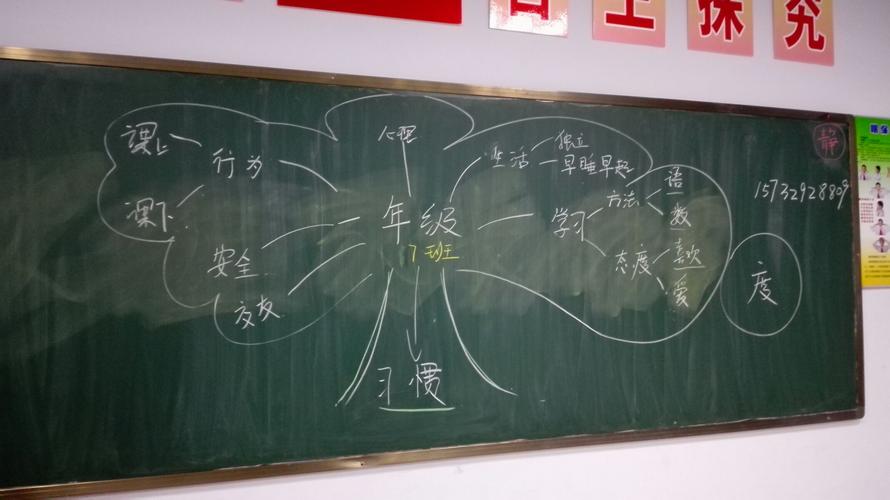 上探究
静
心理
课上
行为
课下
安全
交友
年级
7班
习惯
生活
独立
早睡早起
学习
方法
语
数
态度
喜欢
爱
度